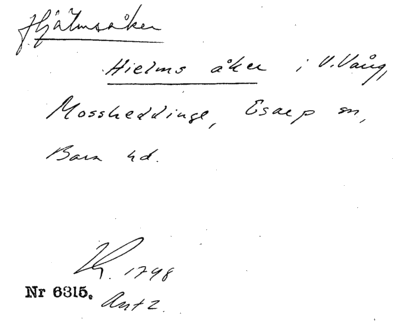 Hjälmsåker
Hielms åker i V. Vång,
Mossheddinge, Esarp sn,
Bara hd.
1798
Nr 6315. Ant 2.